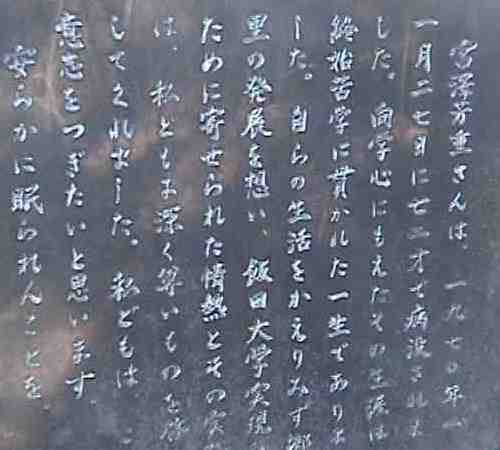 宮澤芳重さんは、一九七〇年
一月二七日に七二才で病没されま
した。向学心にもえたその生涯は
終始苦学に貫かれた一生でありま
した。自らの生活をかえりみず郷
里の発展を想い、飯田大学実現
ために寄せられた情熱とその実
は、私どもに深く尊いものを
してくれました。私どもはこ
意志をつぎたいと思います。
安らかに眠られんことを。